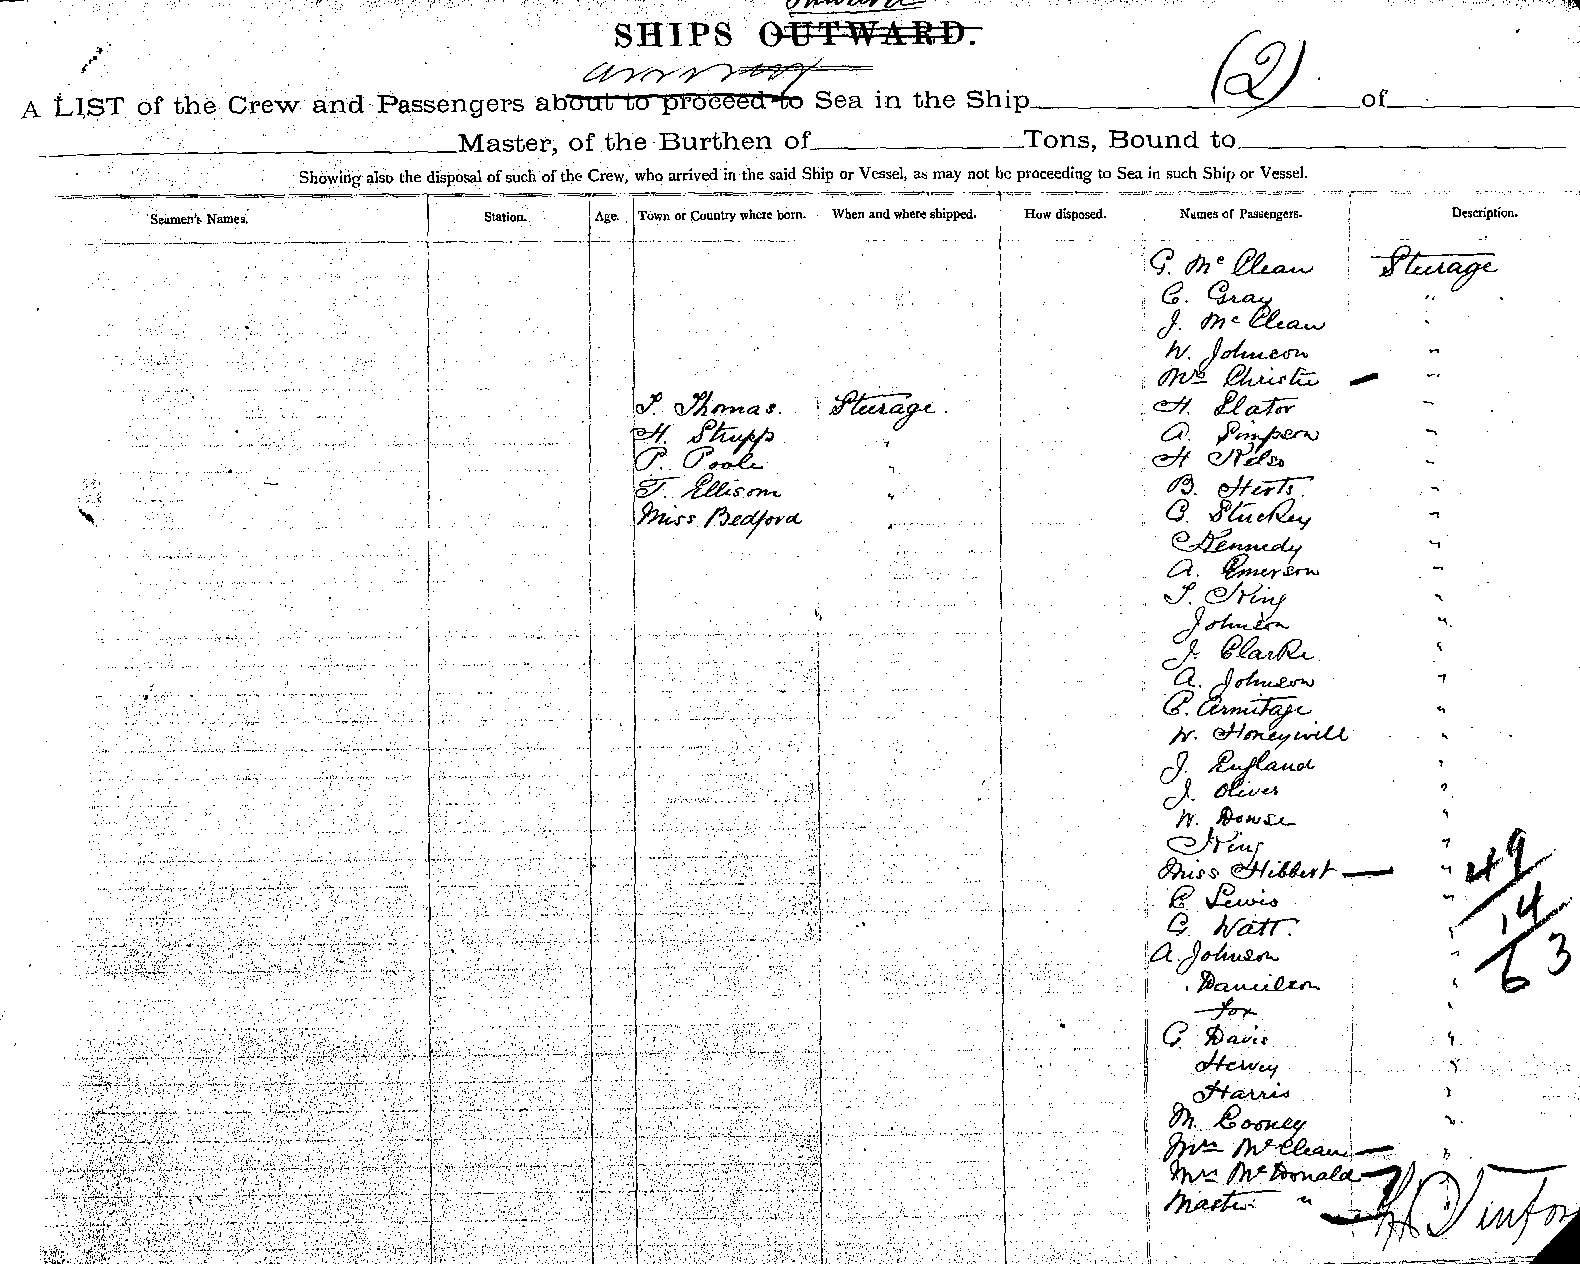 Inward
SHIPS OUTWARD.
arriving
(2)
A LIST of the Crew and Passengers about to proceed to Sea in the Ship of
Master, of the Burthen of Tons, Bound to
Showing also the disposal of such of the Crew, who arrived in the said Ship or Vessel, as may not be proceeding to Sea in such Ship or Vessel.
Seamen's Names. Station. Age. Town or Country where born. When and where shipped. How disposed. Names of Passengers. Description.
G. McClean Sturage
C. Gray "
J. McClean "
W. Johnson "
Mrs Christie "
T. Thomas. Sturage. H. Slator "
H. Strupp " A. Simpson "
P. Poole " H Kelso "
T. Ellisom " B. Herts. "
Miss Bedford " G. Stuckey "
Kennedy "
A. Emerson "
T. King "
Johnson "
J. Clarke "
A. Johnson "
C. Armitage "
W. Honeywill "
J. England "
J. Oliver "
W. Dowse "
King "
Miss Hibbert "
C Lewis "
G. Watt. "
A. Johnson "
Danielson "
Fox "
G. Davis "
Hervey "
Harris "
M. Cooney "
Mrs McClean "
Mrs McDonald
Master "
49
14
63